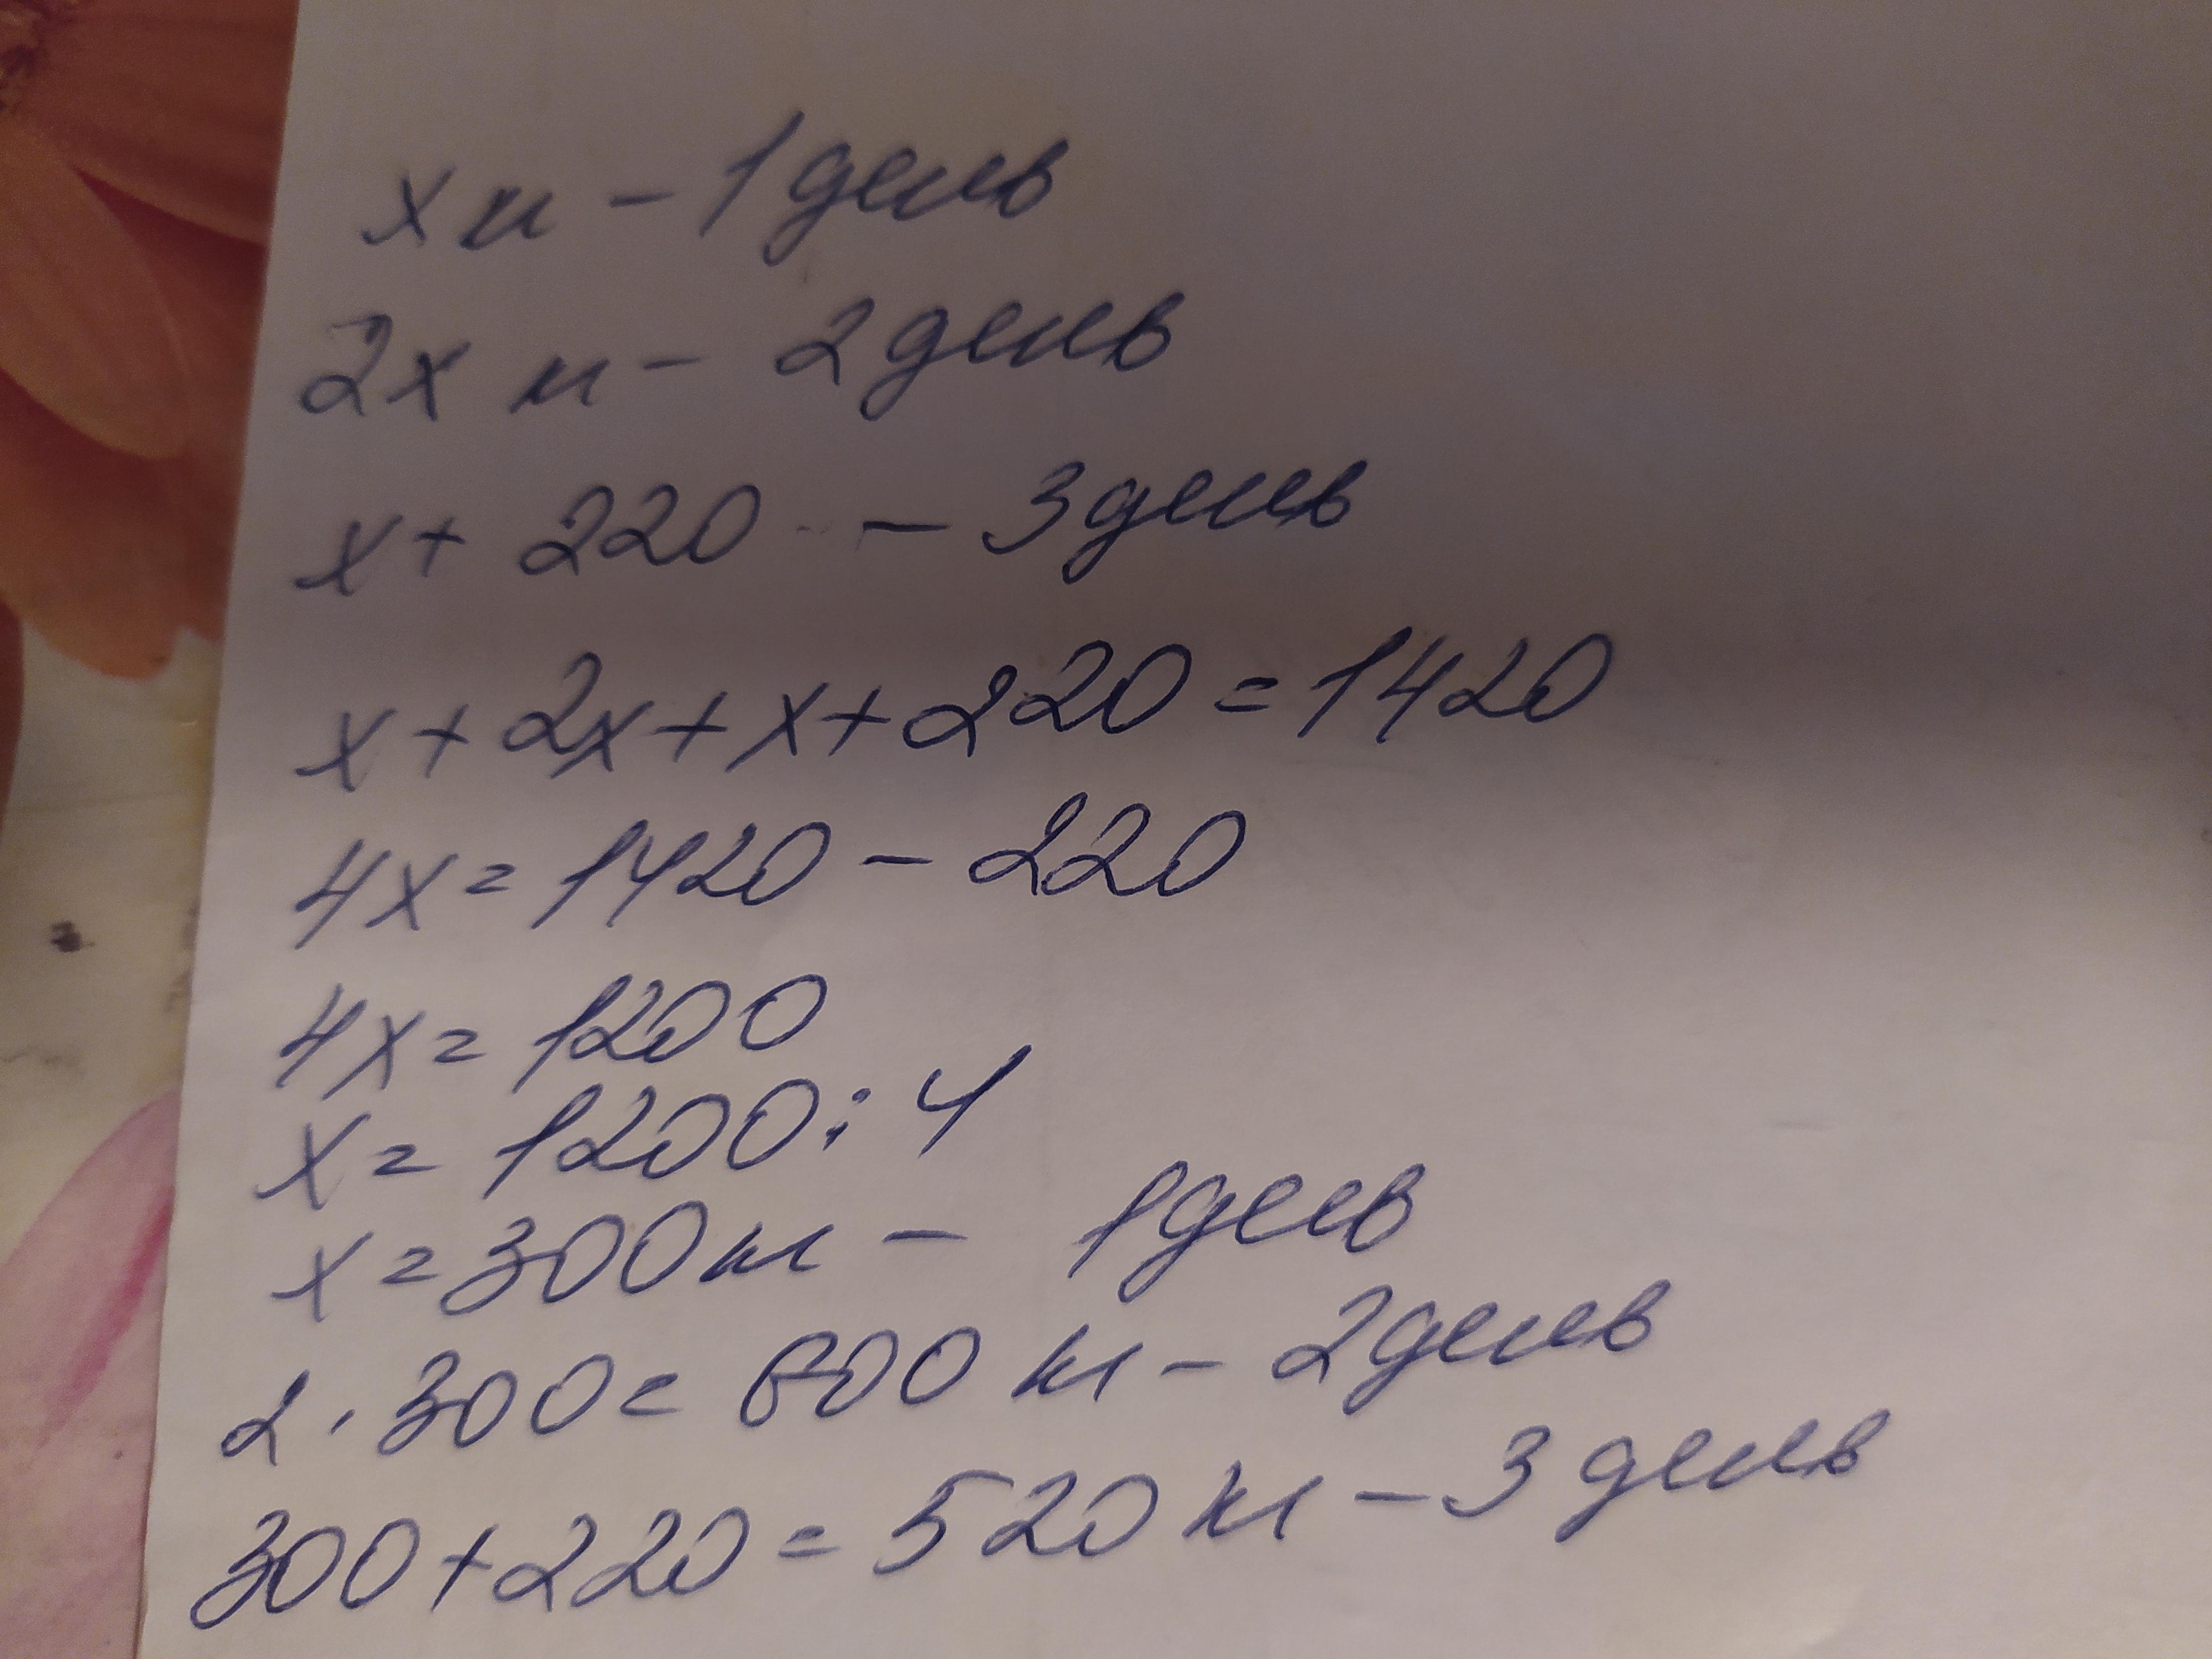 x м - 1 день
2x м - 2 день
x + 220 - 3 день
x + 2x + x + 220 = 1420
4x = 1420 - 220
4x = 1200
x = 1200 : 4
x = 300 м - 1 день
2 · 300 = 600 м - 2 день
300 + 220 = 520 м - 3 день